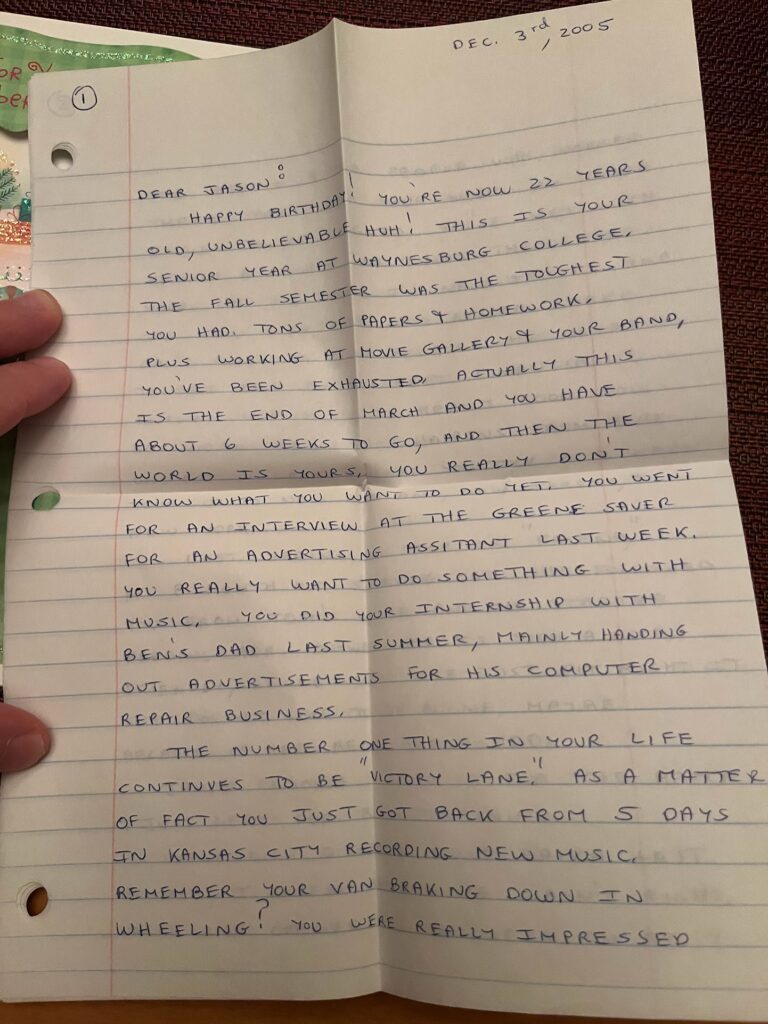 DEC. 3rd, 2005
1
DEAR JASON:
HAPPY BIRTHDAY! YOU'RE NOW 22 YEARS
OLD, UNBELIEVABLE HUH! THIS IS YOUR
SENIOR YEAR AT WAYNESBURG COLLEGE.
THE FALL SEMESTER WAS THE TOUGHEST
YOU HAD. TONS OF PAPERS & HOMEWORK,
PLUS WORKING AT MOVIE GALLERY & YOUR BAND,
YOU'VE BEEN EXHAUSTED. ACTUALLY THIS
IS THE END OF MARCH AND YOU HAVE
ABOUT 6 WEEKS TO GO, AND THEN THE
WORLD IS YOURS. YOU REALLY DON'T
KNOW WHAT YOU WANT TO DO YET. YOU WENT
FOR AN INTERVIEW AT THE GREENE SAVER
FOR AN ADVERTISING ASSITANT LAST WEEK.
YOU REALLY WANT TO DO SOMETHING WITH
MUSIC. YOU DID YOUR INTERNSHIP WITH
BEN'S DAD LAST SUMMER, MAINLY HANDING
OUT ADVERTISEMENTS FOR HIS COMPUTER
REPAIR BUSINESS.
THE NUMBER ONE THING IN YOUR LIFE
CONTINUES TO BE "VICTORY LANE." AS A MATTER
OF FACT YOU JUST GOT BACK FROM 5 DAYS
IN KANSAS CITY RECORDING NEW MUSIC.
REMEMBER YOUR VAN BRAKING DOWN IN
WHEELING? YOU WERE REALLY IMPRESSED